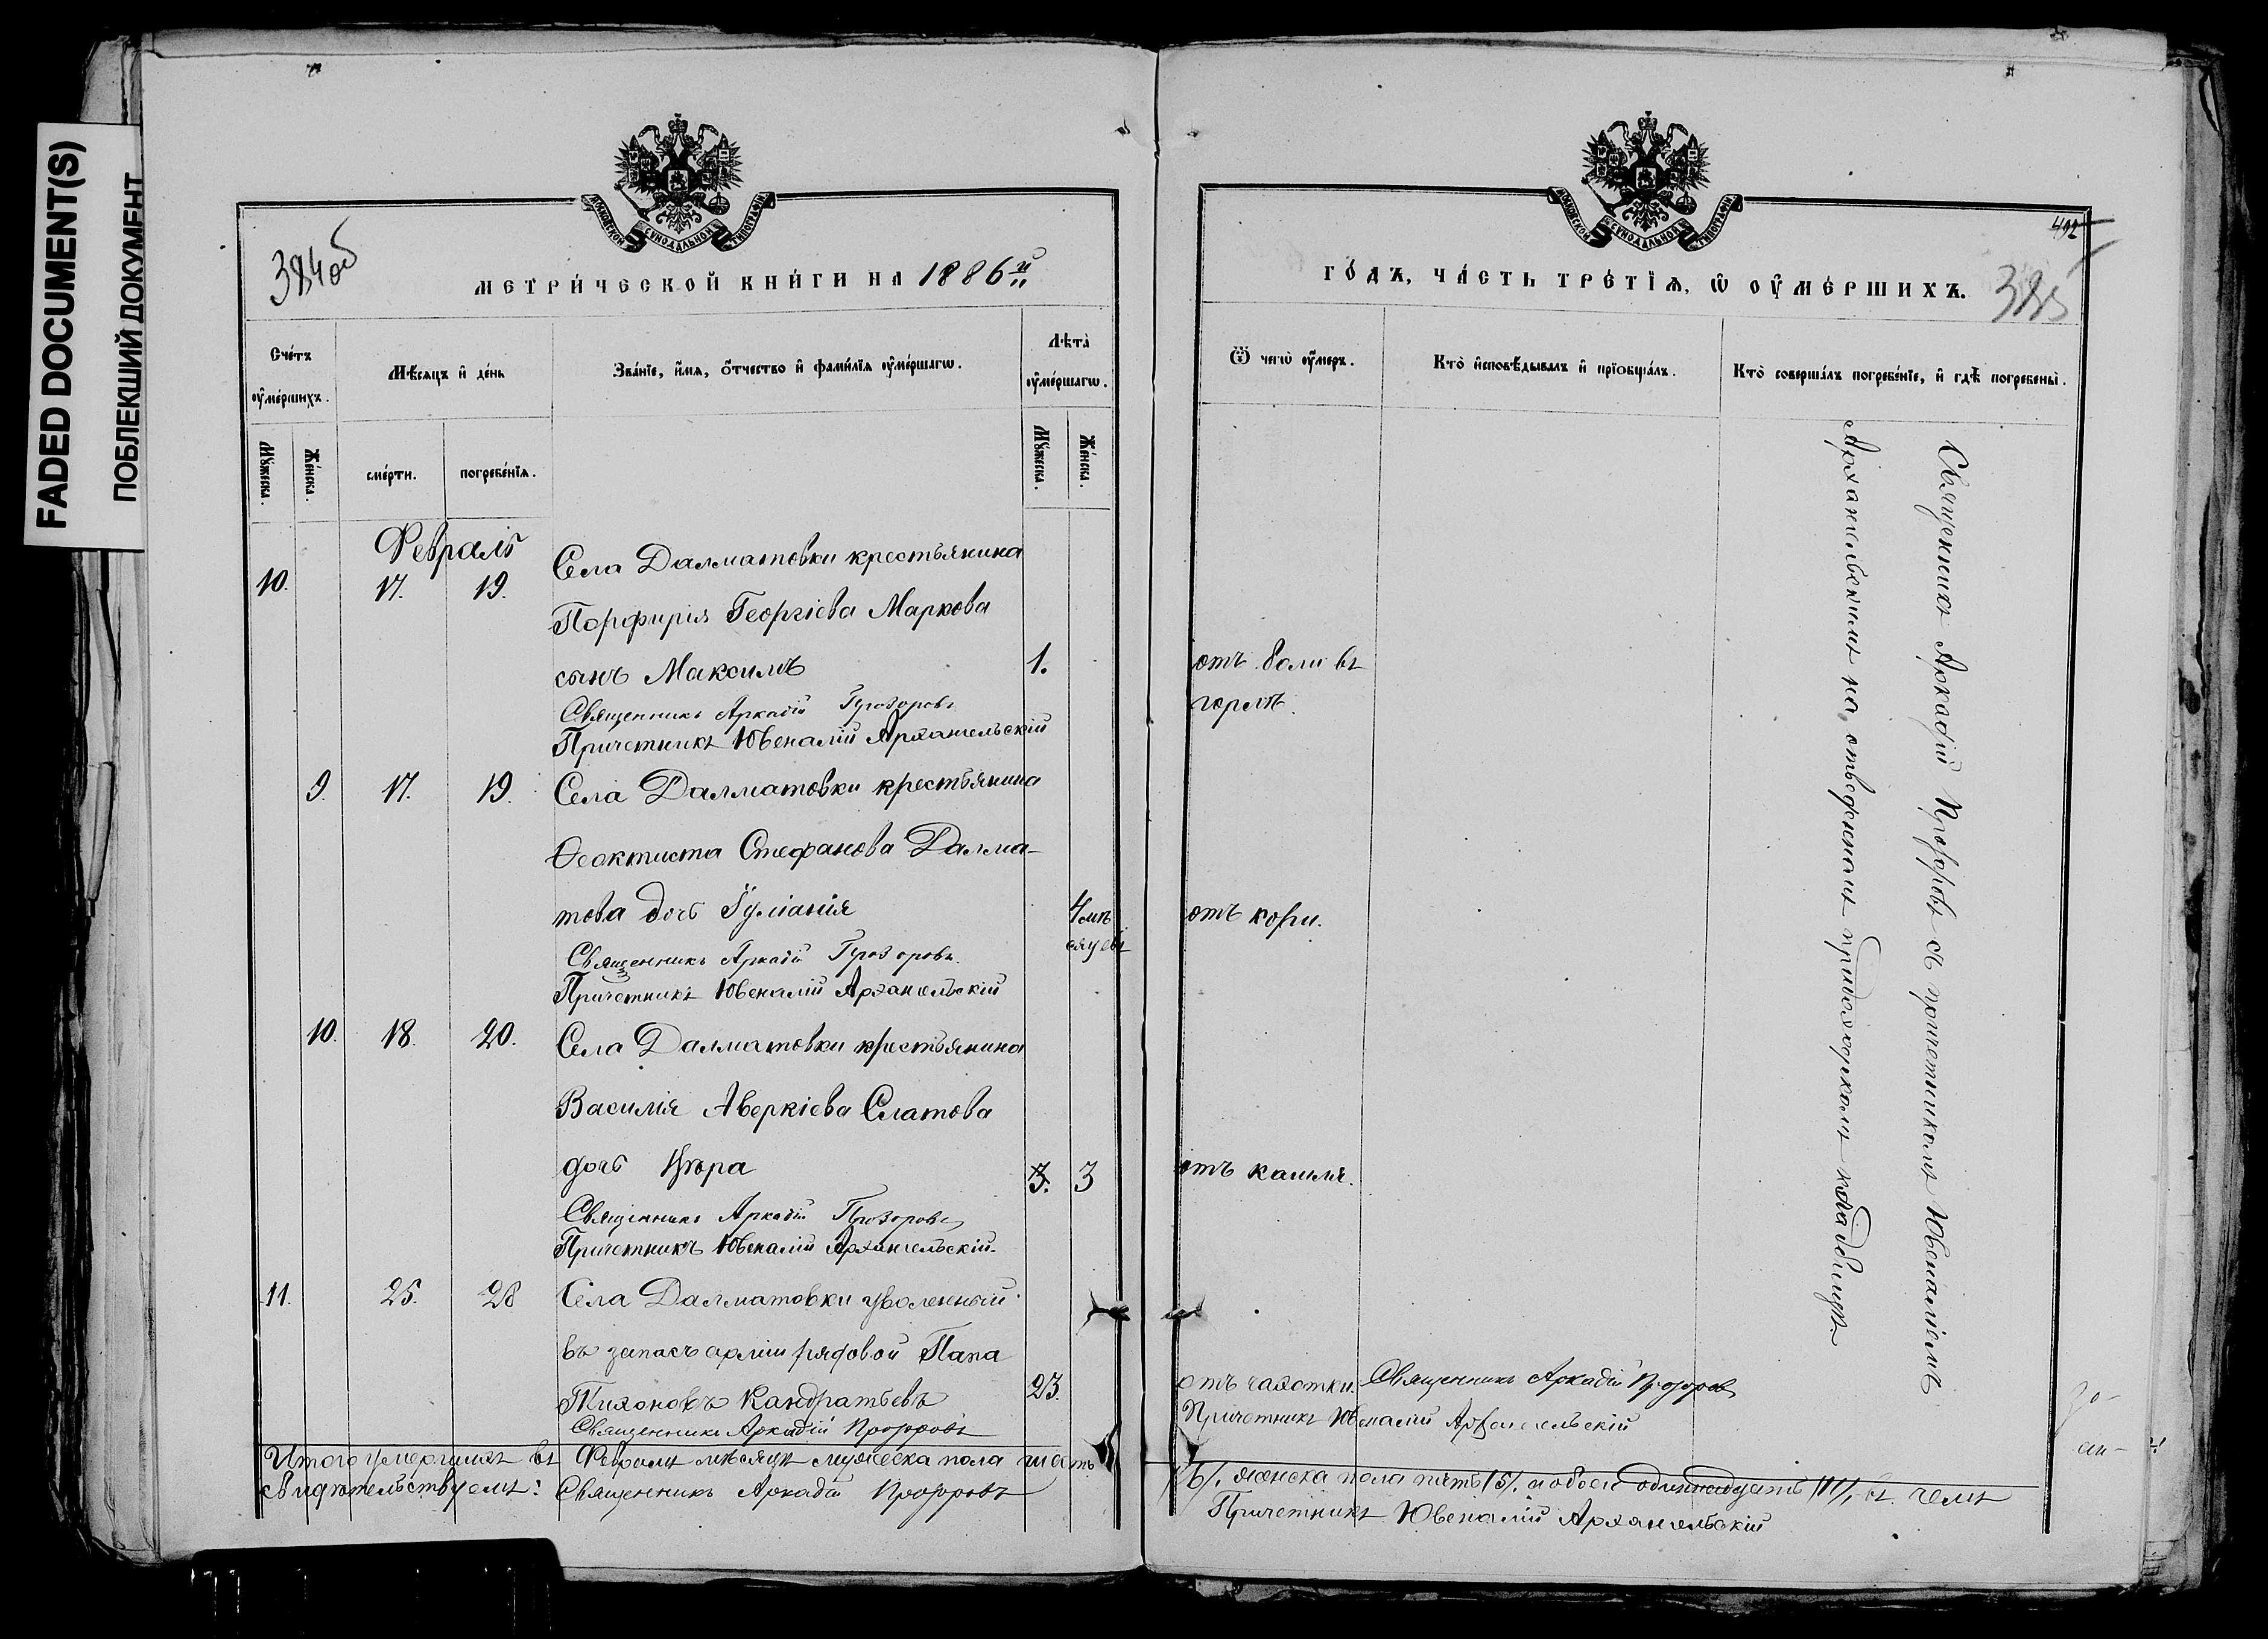 FADED DOCUMENT(S)
ПОБЛЕКШИЙ ДОКУМЕНТ
МОСКОВСКОЙ СѴНОДАЛЬНОЙ ТИПОГРАФІИ
384об
МЕТРИЧЕСКОЙ КНИГИ НА 1886й
Счетъ умершихъ.
Мѣсяцъ и день
Званіе, имя, отчество и фамилія умершагѡ.
Лѣта умершагѡ.
Мужеска.
Женска.
смерти.
погребенія.
Мужеска.
Женска.
Февраль
10. 17. 19. Села Далматовки крестьянина
Порфирія Георгіева Маркова
сынъ Максимъ 1.
Священникъ Аркадій Прозоровъ
Причетникъ Ювеналій Архангельскій
9. 17. 19. Села Далматовки крестьянина
Ѳеоктиста Стефанова Далма-
това дочь Іуліанія 4 мѣ
сяцевъ
Священникъ Аркадій Прозоровъ.
Причетникъ Ювеналій Архангельскій
10. 18. 20. Села Далматовки крестьянина
Василія Аверкіева Слатова
дочь 3. 3
Священникъ Аркадій Прозоровъ
Причетникъ Ювеналій Архангельскій.
11. 25. 28 Села Далматовки уволенный
въ запасъ арміи рядовой Папа
Тихоновъ Кандратьевъ 23.
Священникъ Аркадій Прозоровъ
Итого умершихъ въ Февралѣ мѣсяцѣ мужеска пола шесть
свидѣтельствуемъ: Священникъ Аркадій Прозоровъ
МОСКОВСКОЙ СѴНОДАЛЬНОЙ ТИПОГРАФІИ
412
ГОДЪ, ЧАСТЬ ТРЕТІЯ, Ѡ УМЕРШИХЪ.
385
Ѿ чегѡ умеръ.
Кто исповѣдывалъ и пріобщалъ.
Кто совершалъ погребеніе, и гдѣ погребены.
отъ боли въ
горлѣ.
отъ кори.
отъ кашля.
отъ чахотки. Священникъ Аркадій Прозоровъ
Причетникъ Ювеналій Архангельскій
Священникъ Аркадій Прозоровъ съ причетникомъ Ювеналіемъ
Архангельскимъ на отведенномъ приходскомъ кладбищѣ.
/6/, женска пола пять /5/, а обоего одиннадцать /11/, въ чемъ
Причетникъ Ювеналій Архангельскій